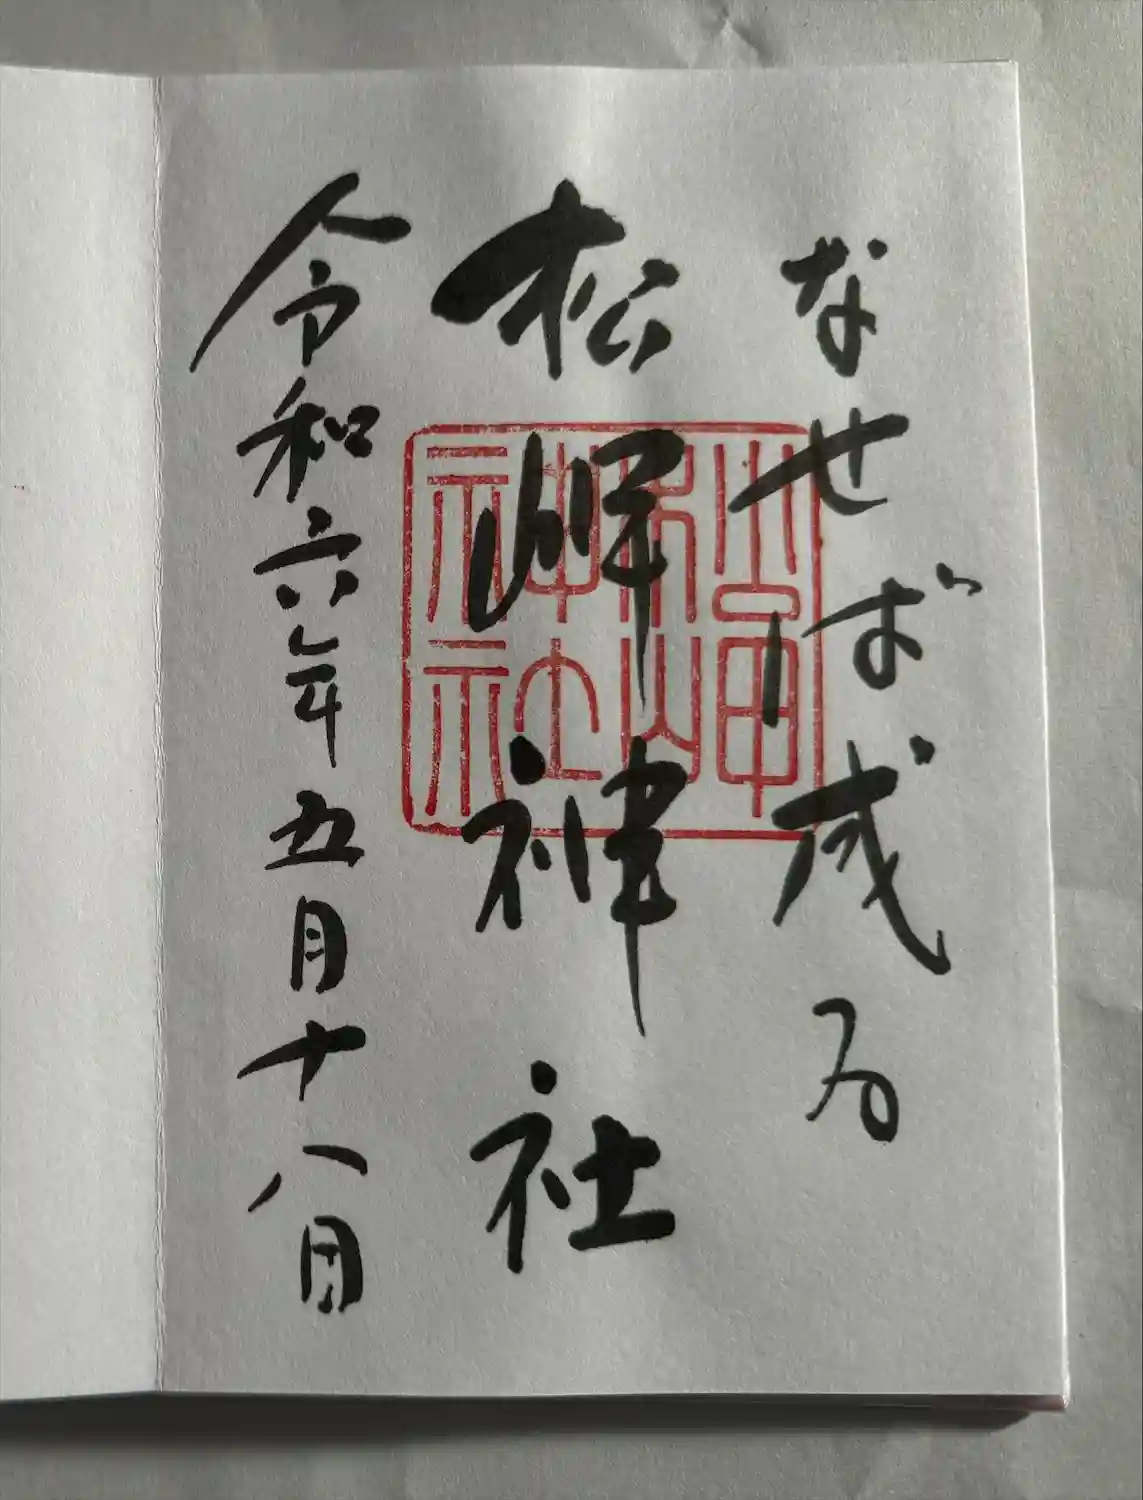 なせば成る
松岬神社
松岬神社
令和六年五月十八日